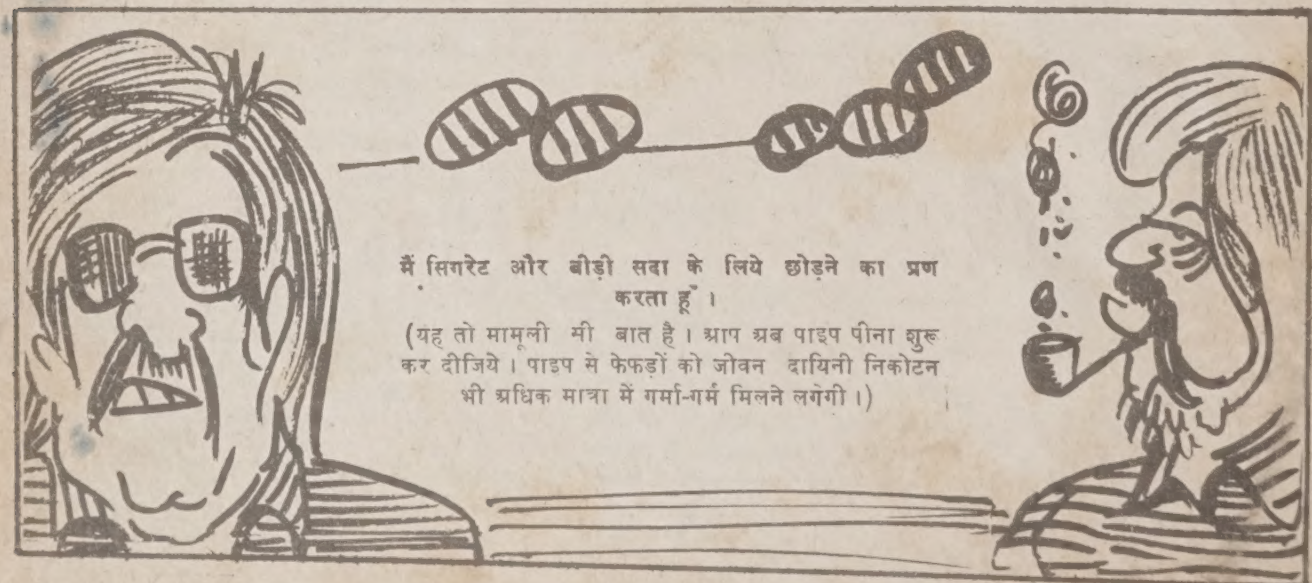 मैं सिगरेट और बीड़ी सदा के लिये छोड़ने का प्रण
करता हूँ ।
(यह तो मामूली सी बात है । आप अब पाइप पीना शुरू
कर दीजिये । पाइप से फेफड़ों को जीवन दायिनी निकोटन
भी अधिक मात्रा में गर्मा-गर्म मिलने लगेगी ।)